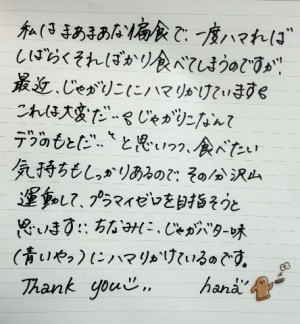 私はまあまあな偏食で、一度ハマれば
しばらくそればかり食べてしまうのですが、
最近、じゃがりこにハマりかけています。
これは大変だ…。じゃがりこなんて
デブのもとだ…。と思いつつ、食べたい
気持ちもしっかりあるので、その分沢山
運動して、プラマイゼロを目指そうと
思います!! ちなみに、じゃがバター味
(青いやつ)にハマりかけているのです。
Thank you
hana